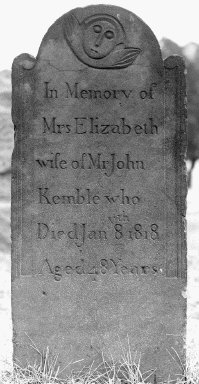 In Memory of
Mrs Elizabeth
wife of Mr John
Kemble who
Died Jan 8th 1818
Aged 48 Years